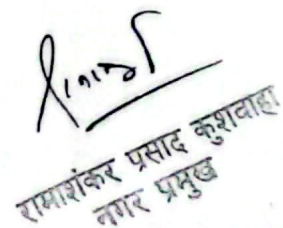 रामाशंकर प्रसाद कुशवाहा
नगर प्रमुख